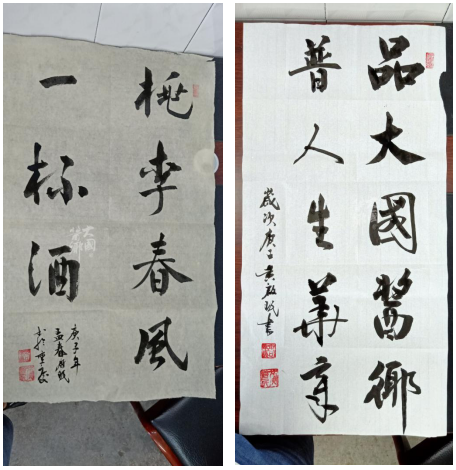 桃李春風
一杯酒
庚子年
孟春
品大國醬
普人生華章
歲次庚子黄 書